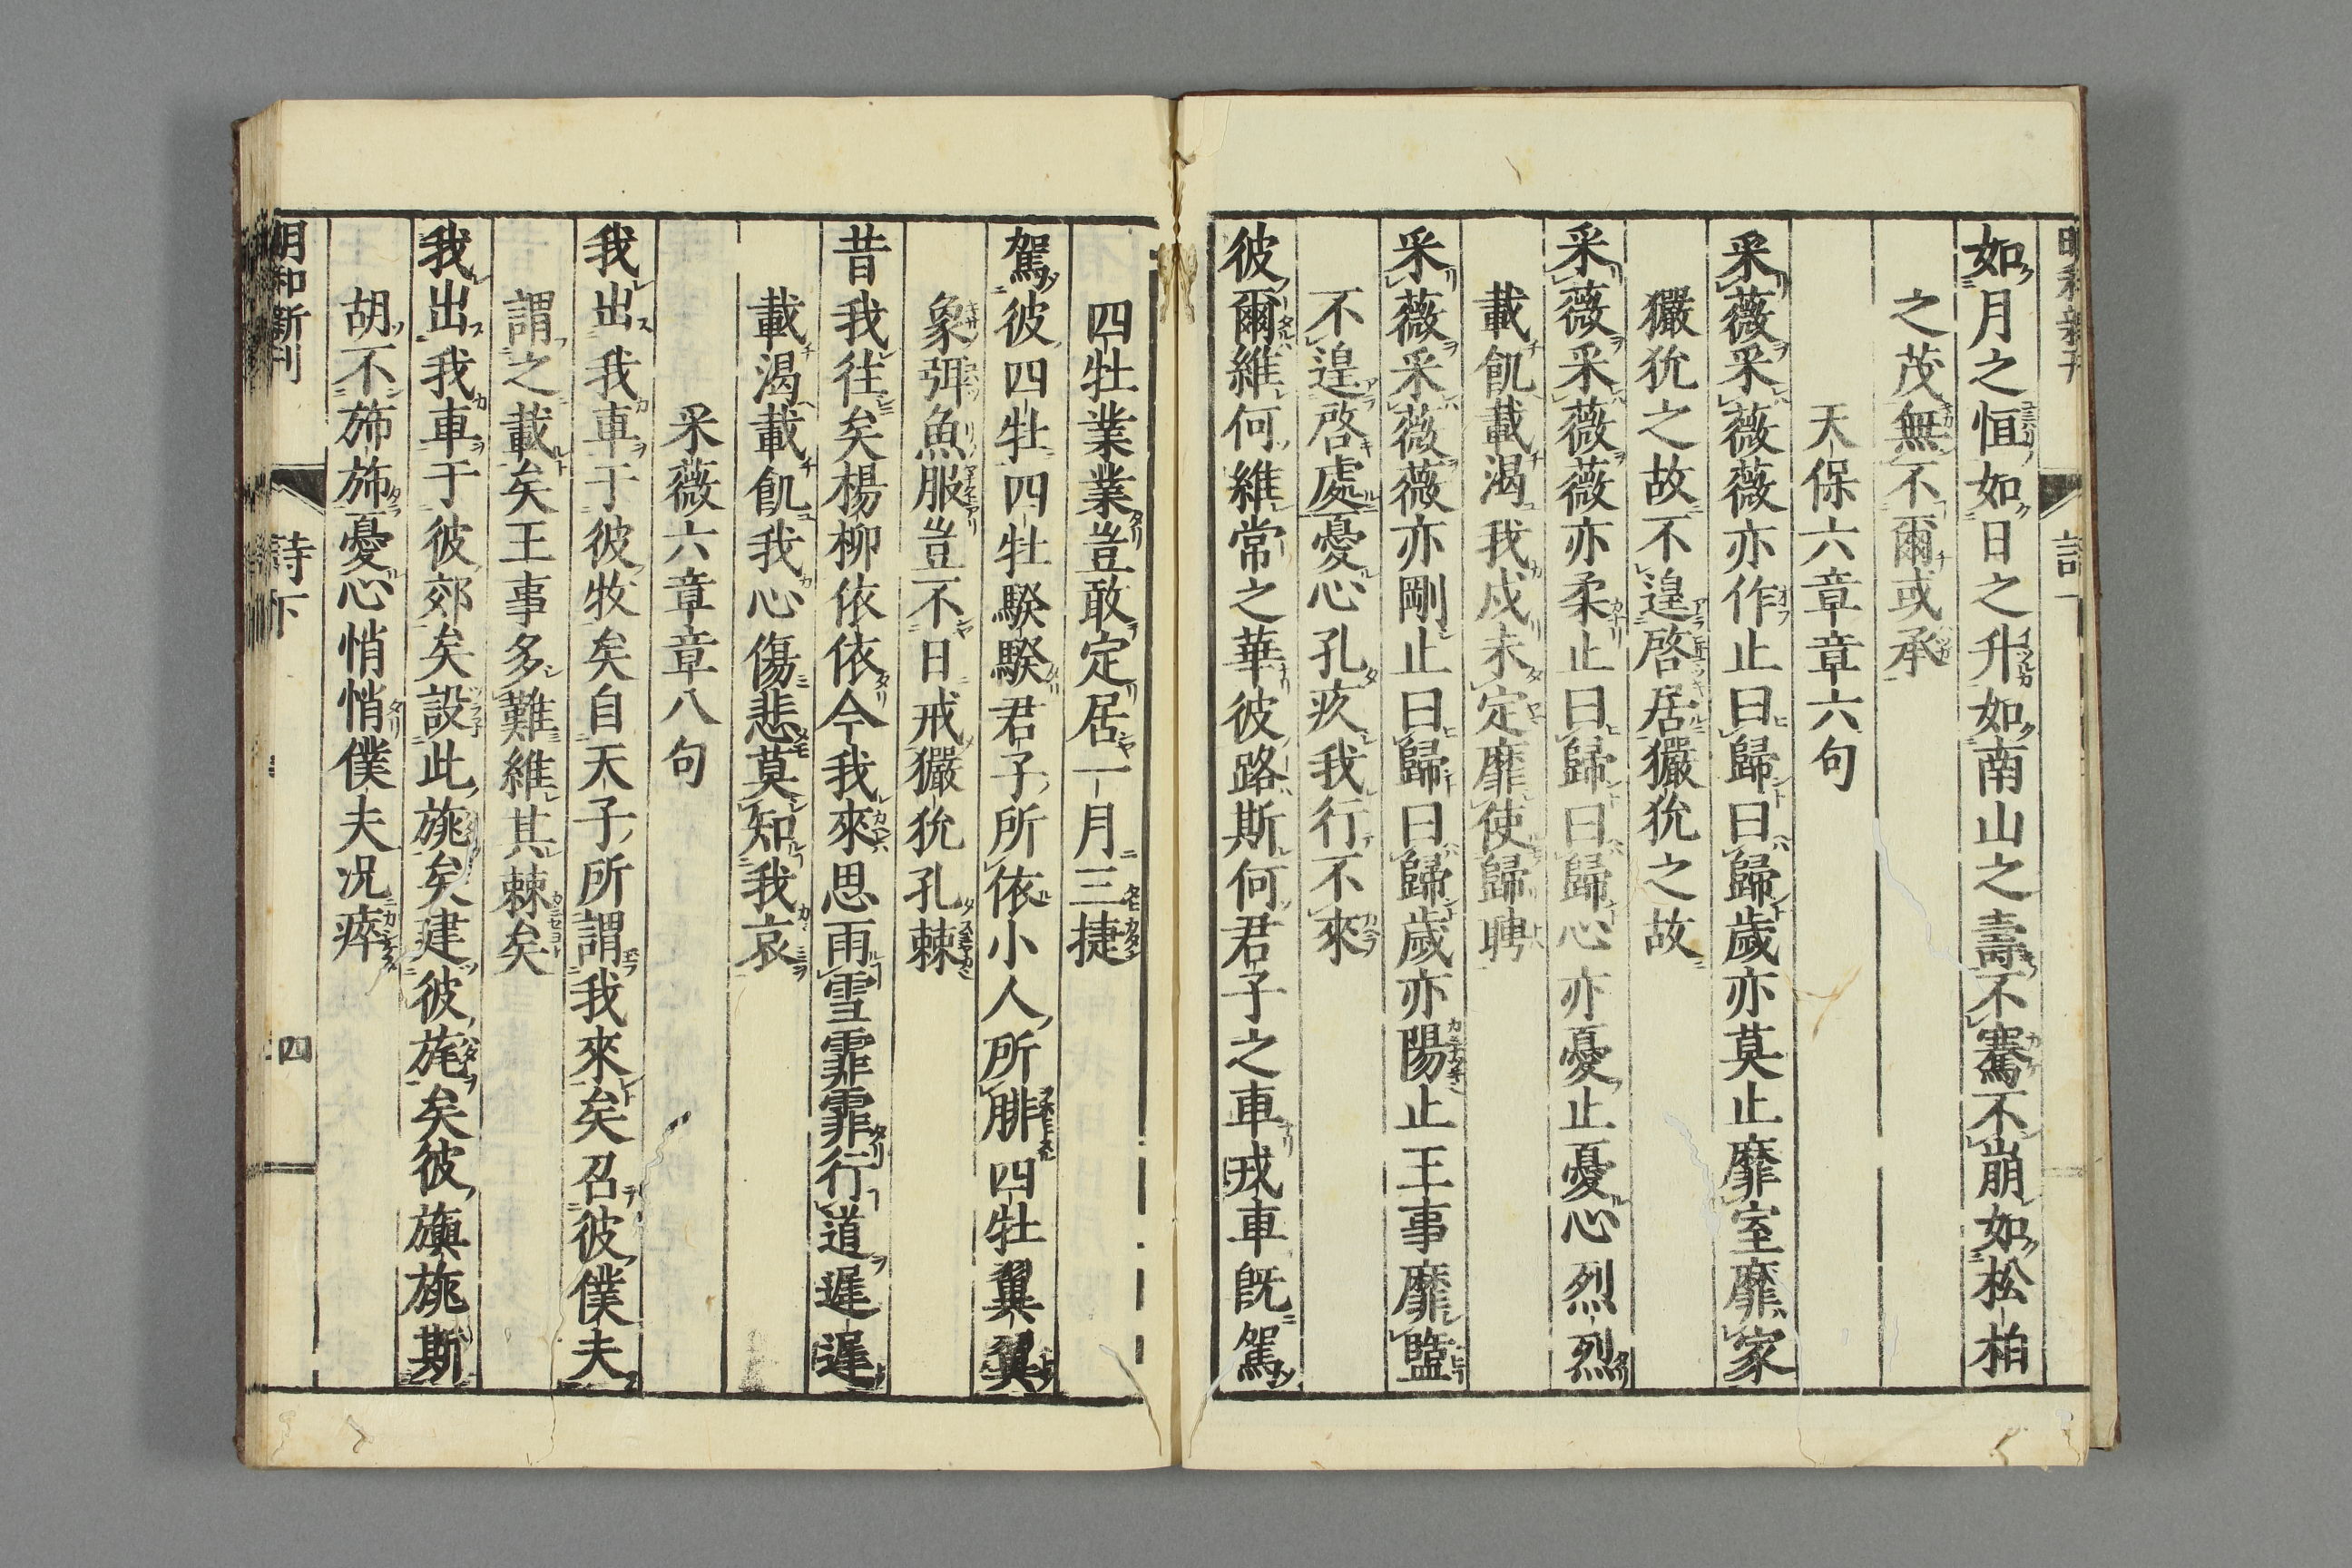 如月之恒如日之升如南山之壽不騫不崩如松柏
之茂無不爾或承
天保六章章六句
采薇采薇薇亦作止曰歸曰歸歲亦莫止靡室靡家
玁狁之故不遑啓居玁狁之故
采薇采薇薇亦柔止曰歸曰歸心亦憂止憂心烈烈
載飢載渴我戍未定靡使歸聘
采薇采薇薇亦剛止曰歸曰歸歲亦陽止王事靡盬
不遑啓處憂心孔疚我行不來
彼爾維何維常之華彼路斯何君子之車戎車既駕
四牡業業豈敢定居一月三捷
駕彼四牡四牡騤騤君子所依小人所腓四牡翼翼
象弭魚服豈不日戒玁狁孔棘
昔我往矣楊柳依依今我來思雨雪霏霏行道遲遲
載渴載飢我心傷悲莫知我哀
采薇六章章八句
我出我車于彼牧矣自天子所謂我來矣召彼僕夫
謂之載矣王事多難維其棘矣
我出我車于彼郊矣設此旐矣建彼旄矣彼旟旐斯
胡不旆旆憂心悄悄僕夫況瘁
明和新刊 詩下 四